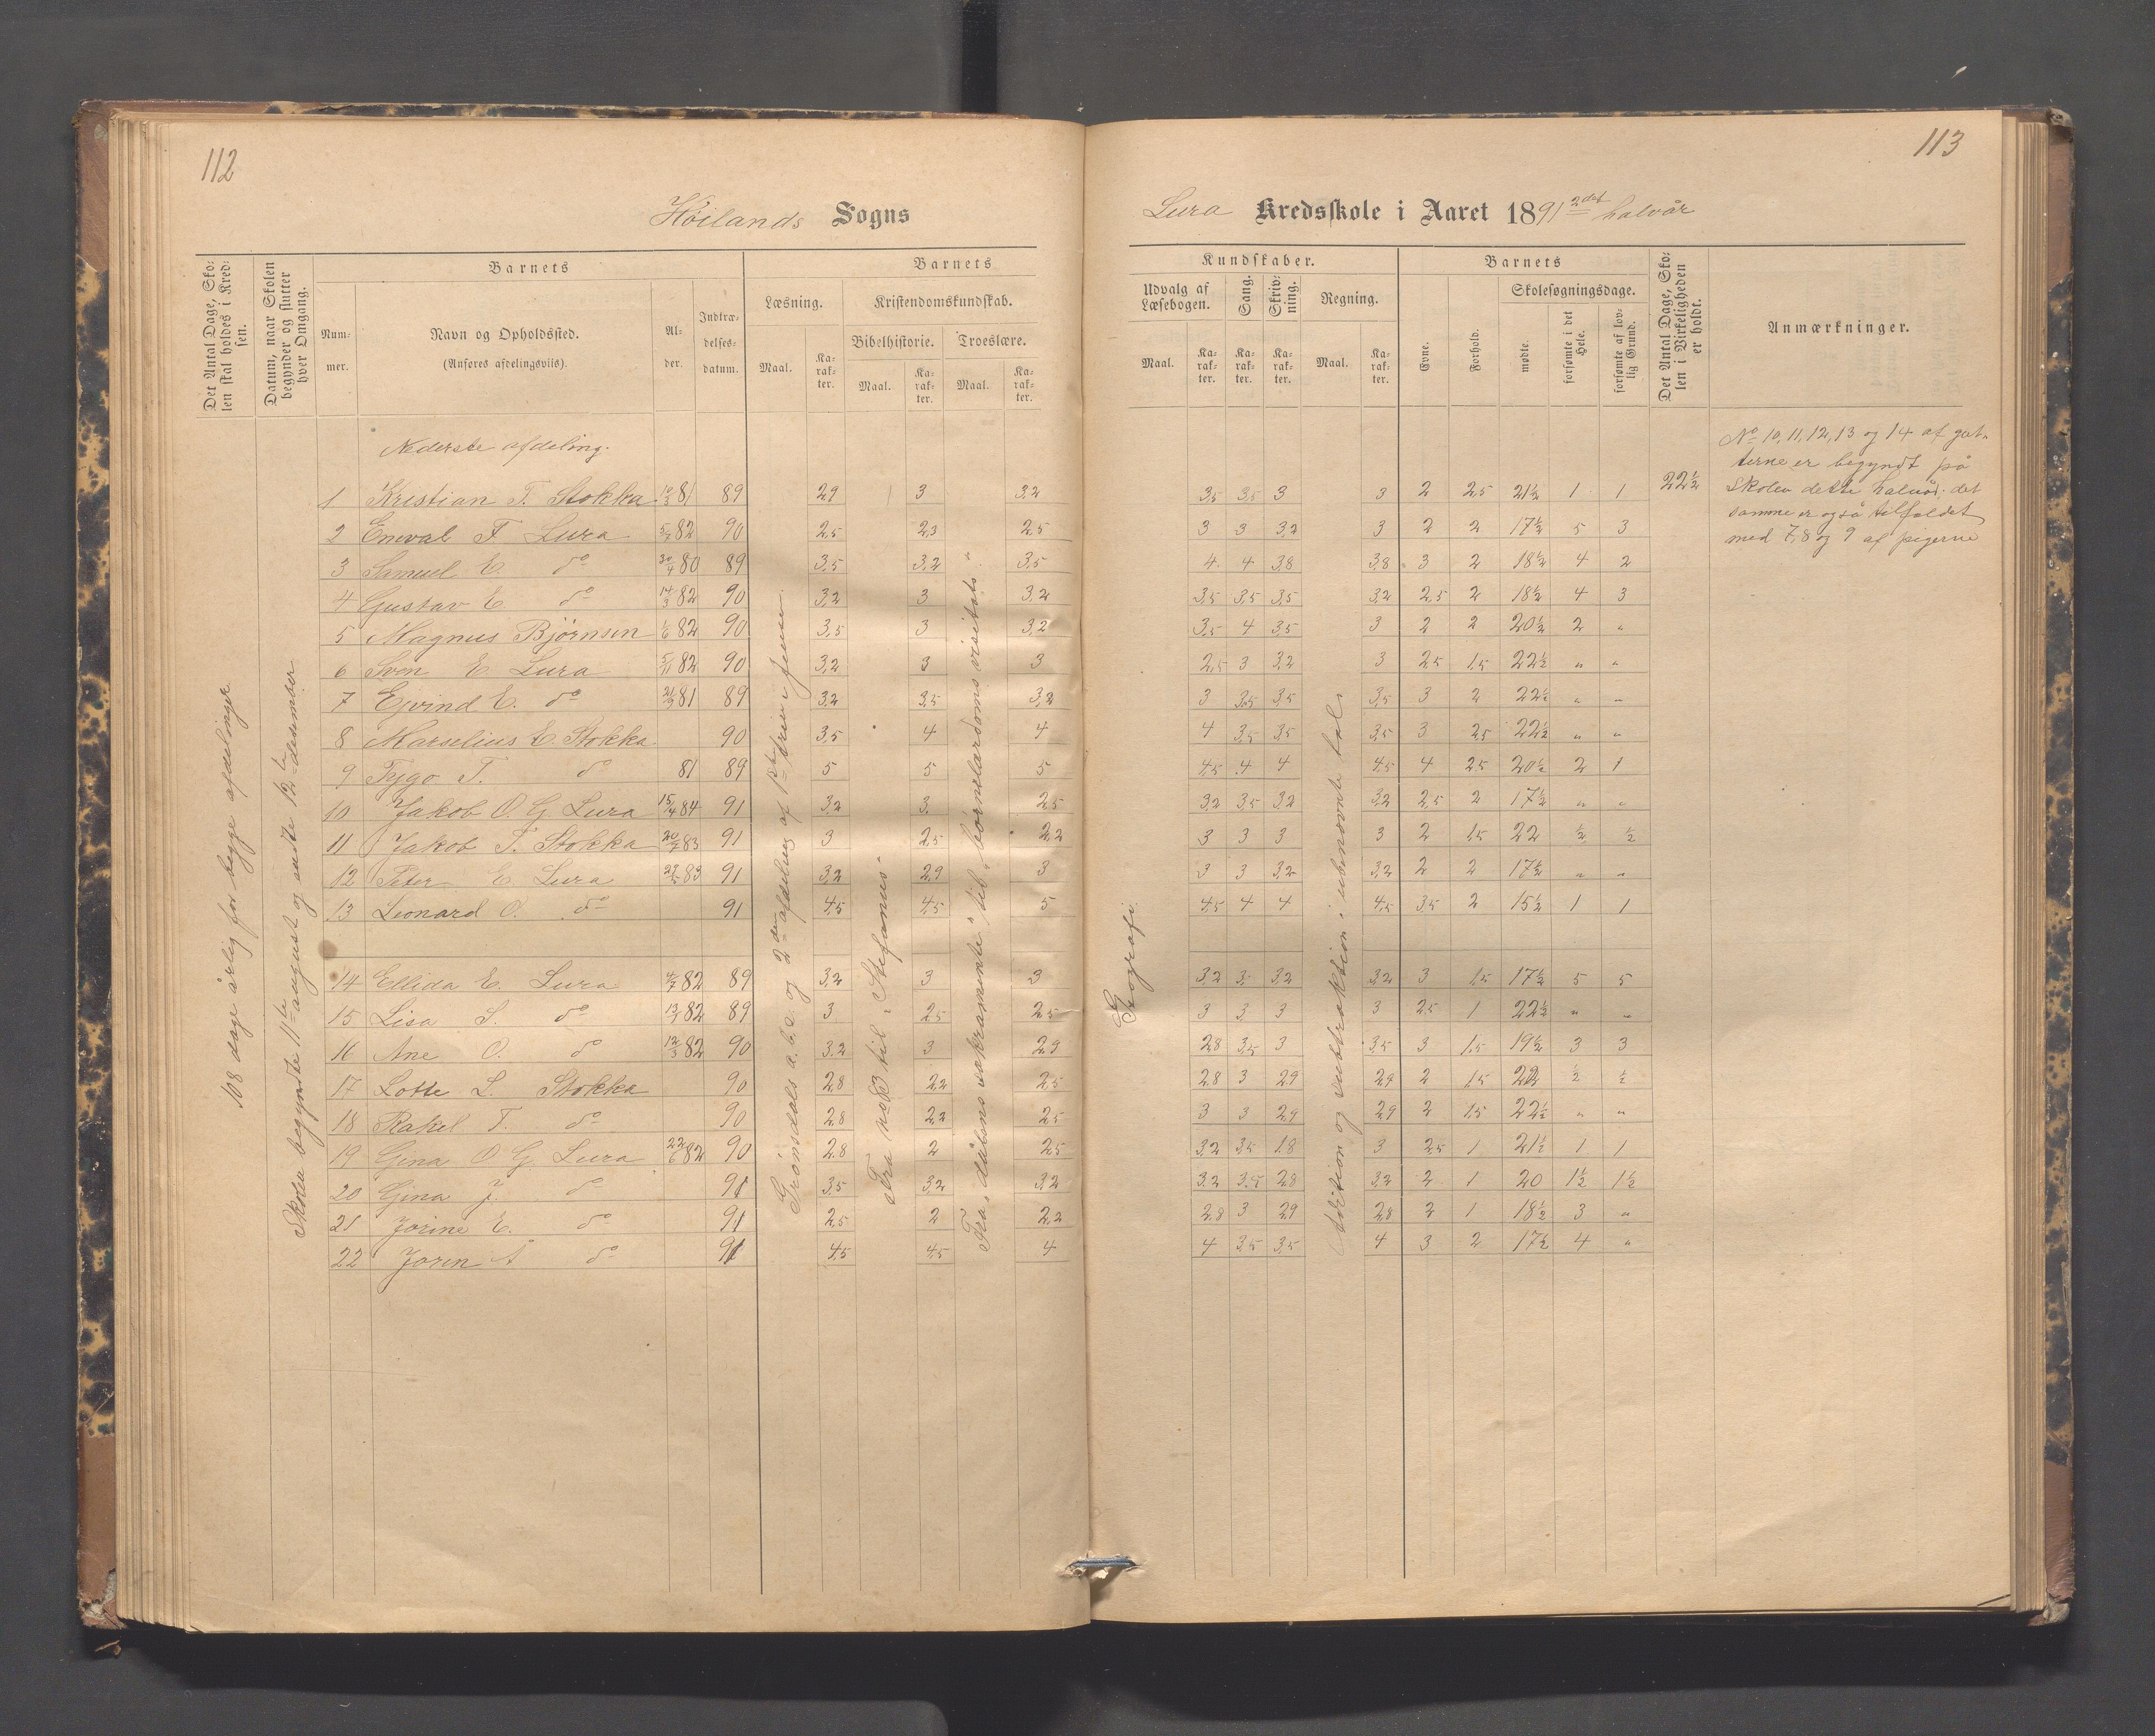 112
Höilands Sogns
Det Antal Dage, Sko-
len skal holdes i Kred-
sen.
Datum, naar Skolen
begynder og slutter
hver Omgang.
Barnets
Num-
mer.
Navn og Opholdssted.
(Anføres afdelingsviis).
Al-
der.
Indtræ-
delses-
datum.
Barnets
Læsning.
Maal.
Ka-
rak-
ter.
Kristendomskundskab.
Bibelhistorie.
Maal.
Ka-
rak-
ter.
Troeslære.
Maal.
Ka-
rak-
ter.
108 dage årlig for begge afdelinger
Skolen begyndte 11te august og endte 12te desember
Nederste afdeling.
1 Kristian T. Stokka 10/3 81 89 2,9 3 3,2
2 Eneval F Lura 5/7 82 90 2,5 2,3 2,5
3 Samuel E. do 30/4 80 89 3,5 3,2 3,5
4 Gustav E. do 14/3 82 90 3,2 3 3,2
5 Magnus Bjørnsen 1/6 82 90 3,5 3 3,2
6 Sven E. Lura 5/11 82 90 3,2 3 3
7 Ejvind E. do 81 89 3,2 3,5 3,2
8 Marselius E. Stokka 90 3,5 4 4
9 Tejgo T. do 81 89 5 5 5
10 Jakob O. G. Lura 15/4 84 91 3,2 3 2,5
11 Jakob T. Stokka 20/7 83 91 3 2,5 2,2
12 Peter E Lura 83 91 3,2 2,9 3
13 Leonard O. do 91 4,5 4,5 5
14 Ellida E. Lura 4/7 82 89 3,2 3 3
15 Lisa S. do 13/7 82 89 3 2,5 2,5
16 Ane O. do 12/3 82 90 3,2 3 2,9
17 Lotte L. Stokka 90 2,8 2,2 2,5
18 Rakel T. do 90 2,8 2,2 2,5
19 Gina O G. Lura 22/6 82 90 2,8 2 2,5
20 Gina J. do 91 3,5 3,2 3,2
21 Jorine E. do 91 2,5 2 2,2
22 Joren A do 91 4,5 4,5 4
Grönsdals a.b.c. og 2den afdeling af 1ste
Fra til „Stefanus”
Fra „dåbens sakramente” til „börnelærdoms visitats”
113
Lura Kredsskole i Aaret 1891 2det halvår
Kundskaber.
Udvalg af
Læsebogen.
Maal.
Ka-
rak-
ter.
Sang.
Ka-
rak-
ter.
Skriv-
ning.
Ka-
rak-
ter.
Regning.
Maal.
Ka-
rak-
ter.
Barnets
Evne.
Forhold.
Skolesøgningsdage.
mødte.
forsømte i det
Hele.
forsømte af lov-
lig Grund.
Det Antal Dage, Sko-
len i Virkeligheden
er holdt.
Anmærkninger.
Geografi
Addition og subtraktion i ubenævnte tal
3,5 3,5 3 3 2 2,5 21½ 1 1 22½
3 3 3,2 3 2 2 17½ 5 3
4 4 3,8 3,8 3 2 18½ 4 2
3,5 3,5 3,5 3,2 2,5 2 18½ 4 3
3,5 4 3,5 3 2 2 20½ 2 „
2,5 3 3,2 3 2,5 1,5 22½ „ „
3 3,5 3,5 3,5 3 2 22½ „ „
4 3,5 3,5 3,5 3 2,5 22½ „ „
4,5 4 4 4,5 4 2,5 20½ 2 1
3,2 3,5 3,2 3,2 2,5 2 17½ „ „
3 3 3 3 2 1,5 22 ½ ½
3 3 3,2 3,2 2 2 17½ „ „
4,5 4 4 4,5 3,5 2 15½ 1 1
3,2 3 3,2 3,2 3 1,5 17½ 5 5
3 3 3 3 2,5 1 22½ „ „
2,8 3,5 3 3,5 3 1,5 19½ 3 3
2,8 3 2,9 2,9 2 1,5 22 ½ ½
3 3 2,9 2,9 2 1,5 22½ „ „
3,2 3,5 1,8 3 2,5 1 21½ 1 1
3,2 3,5 2,8 3,2 2 1 20 1½ 1½
2,8 3 2,9 2,8 2 1 18½ 3 „
4 3,5 3,5 4 3 2 17½ 4 „
No 10, 11, 12, 13 og 14 af gut-
terne er begyndt på
Skolen dette halvår; det
samme er også tilfældet
med 7, 8 og 9 af pigerne